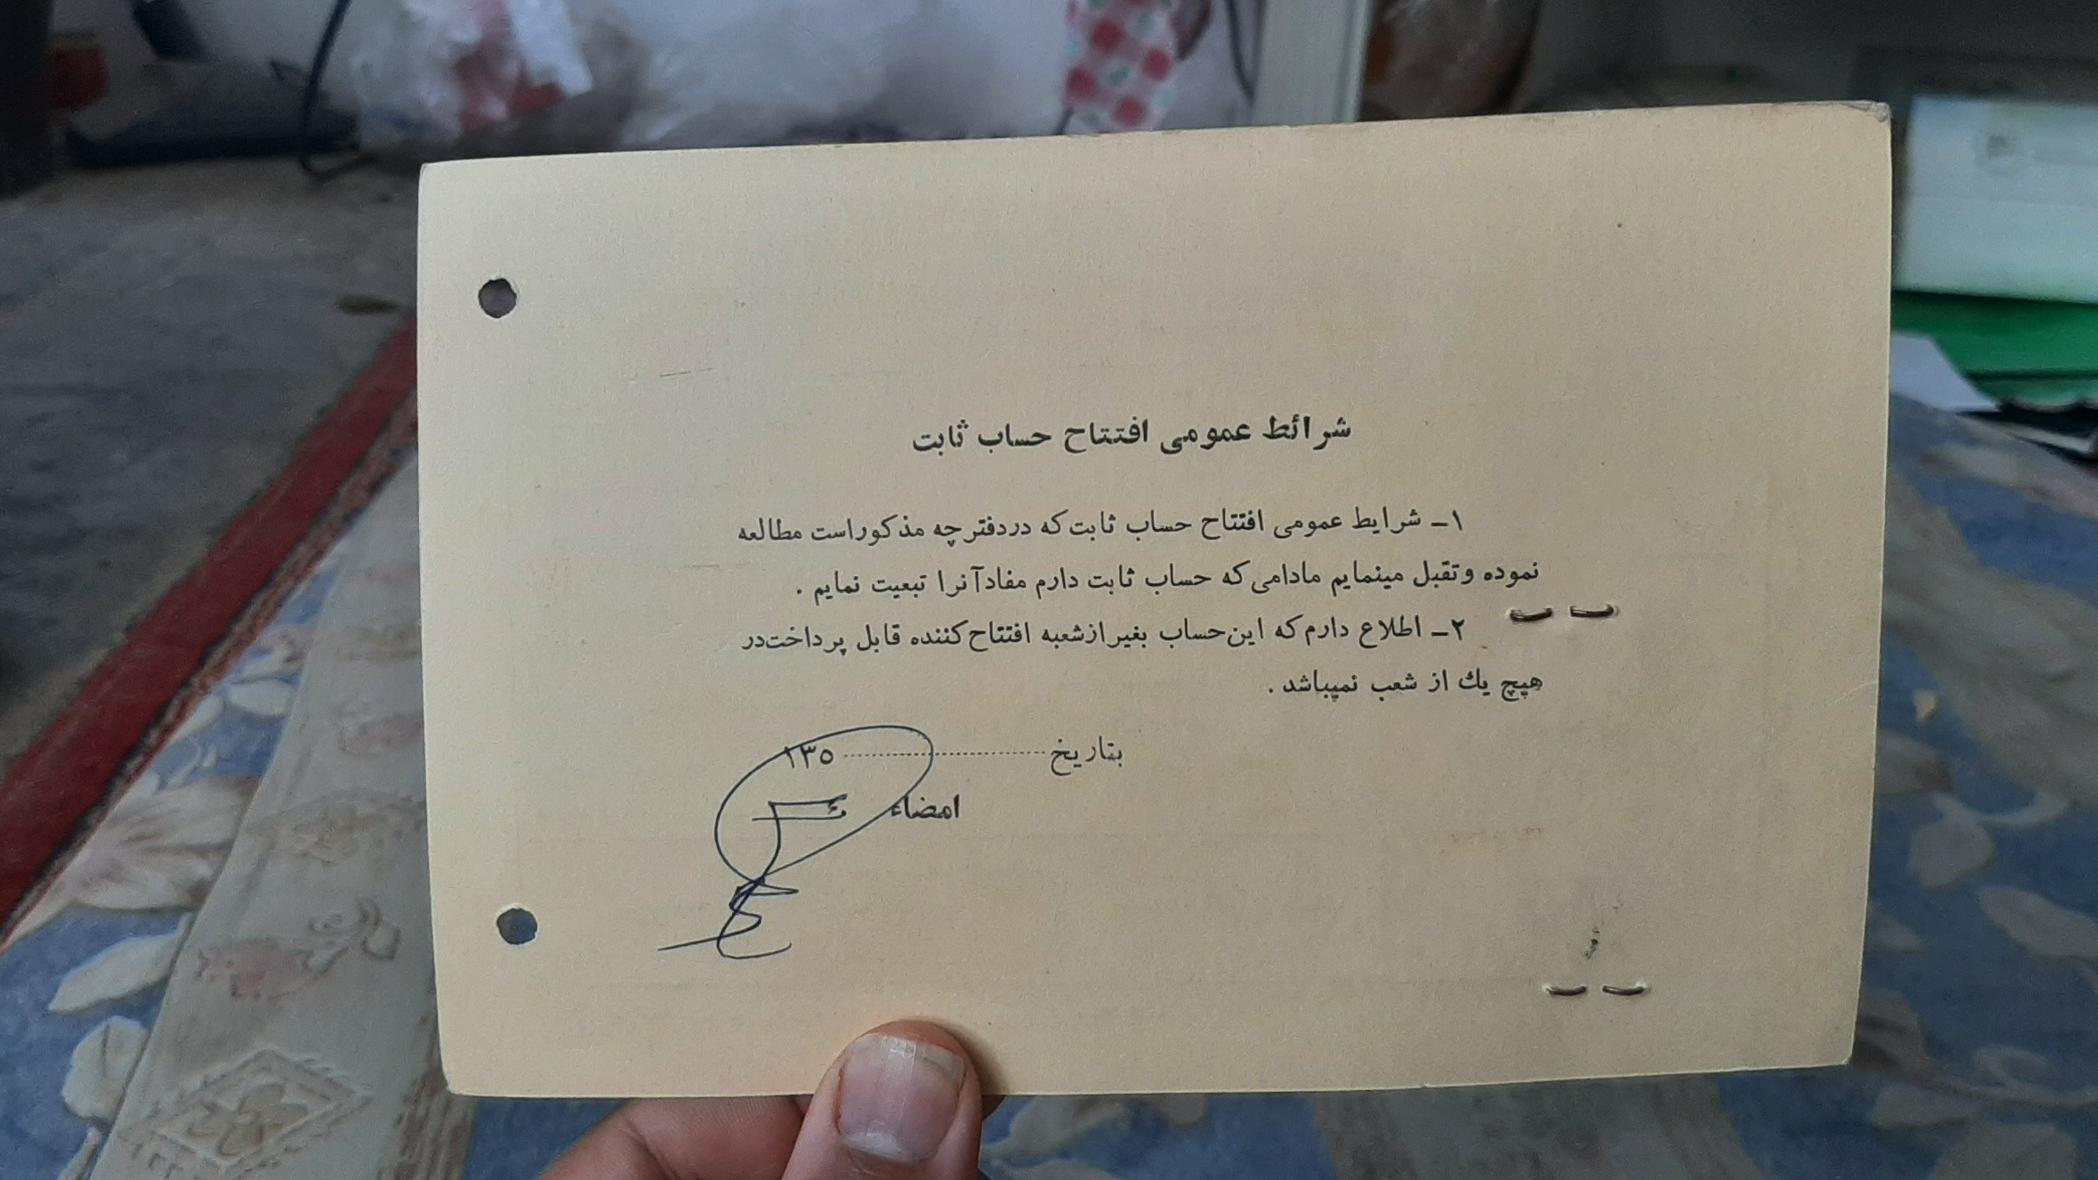 شرائط عمومی افتتاح حساب ثابت
۱ـ شرایط عمومی افتتاح حساب ثابت که دردفترچه مذکوراست مطالعه
نموده وتقبل مینمایم مادامی که حساب ثابت دارم مفادآنرا تبعیت نمایم .
۲ـ اطلاع دارم که این حساب بغیرازشعبه افتتاح کننده قابل پرداخت در
هیچ یك از شعب نمیباشد .
بتاریخ ............................ ۱۳۵
امضاء